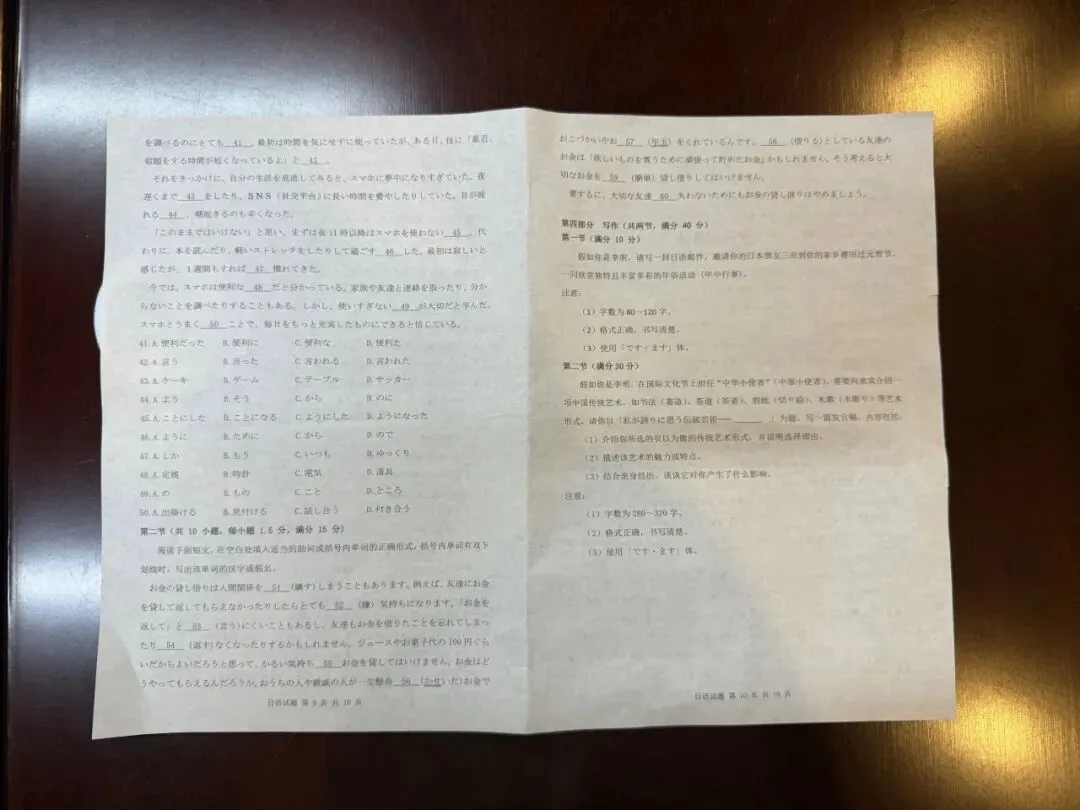 を調べるのにとても 41 。最初は時間を気にせずに使っていたが、ある日、母に「最近、
宿題をする時間が短くなっているよ」と 42 。
それをきっかけに、自分の生活を見直してみると、スマホに夢中になりすぎていた。夜
遅くまで 43 をしたり、SNS（社交平台）に長い時間を費やしたりしていた。目が疲
れる 44 、朝起きるのも辛くなった。
「このままではいけない」と思い、まずは夜11時以降はスマホを使わない 45 。代
わりに、本を読んだり、軽いストレッチをしたりして過ごす 46 した。最初は寂しいと
感じたが、1週間もすれば 47 慣れてきた。
今では、スマホは便利な 48 だと分かっている。家族や友達と連絡を取ったり、分か
らないことを調べたりすることもある。しかし、使いすぎない 49 が大切だと学んだ。
スマホとうまく 50 ことで、毎日をもっと充実したものにできると信じている。
41. A. 便利だった B. 便利に C. 便利な D. 便利た
42. A. 言う B. 言った C. 言われる D. 言われた
43. A. ケーキ B. ゲーム C. テーブル D. サッカー
44. A. よう B. そう C. から D. のに
45. A. ことにした B. ことになる C. ようにした D. ようになった
46. A. ように B. ために C. から D. ので
47. A. しか B. もう C. いつも D. ゆっくり
48. A. 定規 B. 時計 C. 電気 D. 道具
49. A. の B. もの C. こと D. ところ
50. A. 出掛ける B. 見付ける C. 話し合う D. 付き合う
第二节（共 10 小题；每小题 1.5 分，满分 15 分）
阅读下面短文，在空白处填入适当的助词或括号内单词的正确形式，括号内单词有双下
划线时，写出该单词的汉字或假名。
お金の貸し借りは人間関係を 51 （壊す）しまうこともあります。例えば、友達にお金
を貸して返してもらえなかったりしたらとても 52 （嫌）気持ちになります。「お金を
返して」と 53 （言う）にくいこともあるし、友達もお金を借りたことを忘れてしまっ
たり 54 （返す）なくなったりするかもしれません。ジュースやお菓子代の100円ぐら
いだからよいだろうと思って、かるい気持ち 55 お金を貸してはいけません。お金はど
うやってもらえるんだろうか。おうちの人や親戚の人が一生懸命 56 （かせいだ）お金で
日语试题 第 9 页 共 10 页
おこづかいやお 57 （年玉）をくれているんです。 58 （借りる）としている友達の
お金は「欲しいものを買うために頑張って貯めたお金」かもしれません。そう考えると大
切なお金を 59 （簡単）貸し借りしてはいけません。
要するに、大切な友達 60 失わないためにもお金の貸し借りはやめましょう。
第四部分 写作（共两节，满分 40 分）
第一节（满分 10 分）
假如你是李明，请写一封日语邮件，邀请你的日本朋友三田到你的家乡莆田过元宵节，
一同欣赏独特且丰富多彩的年俗活动（年中行事）。
注意：
（1）字数为80～120字。
（2）格式正确，书写清楚。
（3）使用「です・ます」体。
第二节（满分30分）
假如你是李明，在国际文化节上担任“中华小使者”（中華小使者），需要向来宾介绍一
项中国传统艺术，如书法（書道）、茶道（茶道）、剪纸（切り絵）、木雕（木彫り）等艺术
形式。请你以「私が誇りに思う伝統芸術──＿＿＿」为题，写一篇发言稿。内容包括：
（1）介绍你所选的引以为傲的传统艺术形式，并说明选择理由。
（2）描述该艺术的魅力或特点。
（3）结合亲身经历，谈谈它对你产生了什么影响。
注意：
（1）字数为280～320字。
（2）格式正确，书写清楚。
（3）使用「です・ます」体。
日语试题 第 10 页 共 10 页